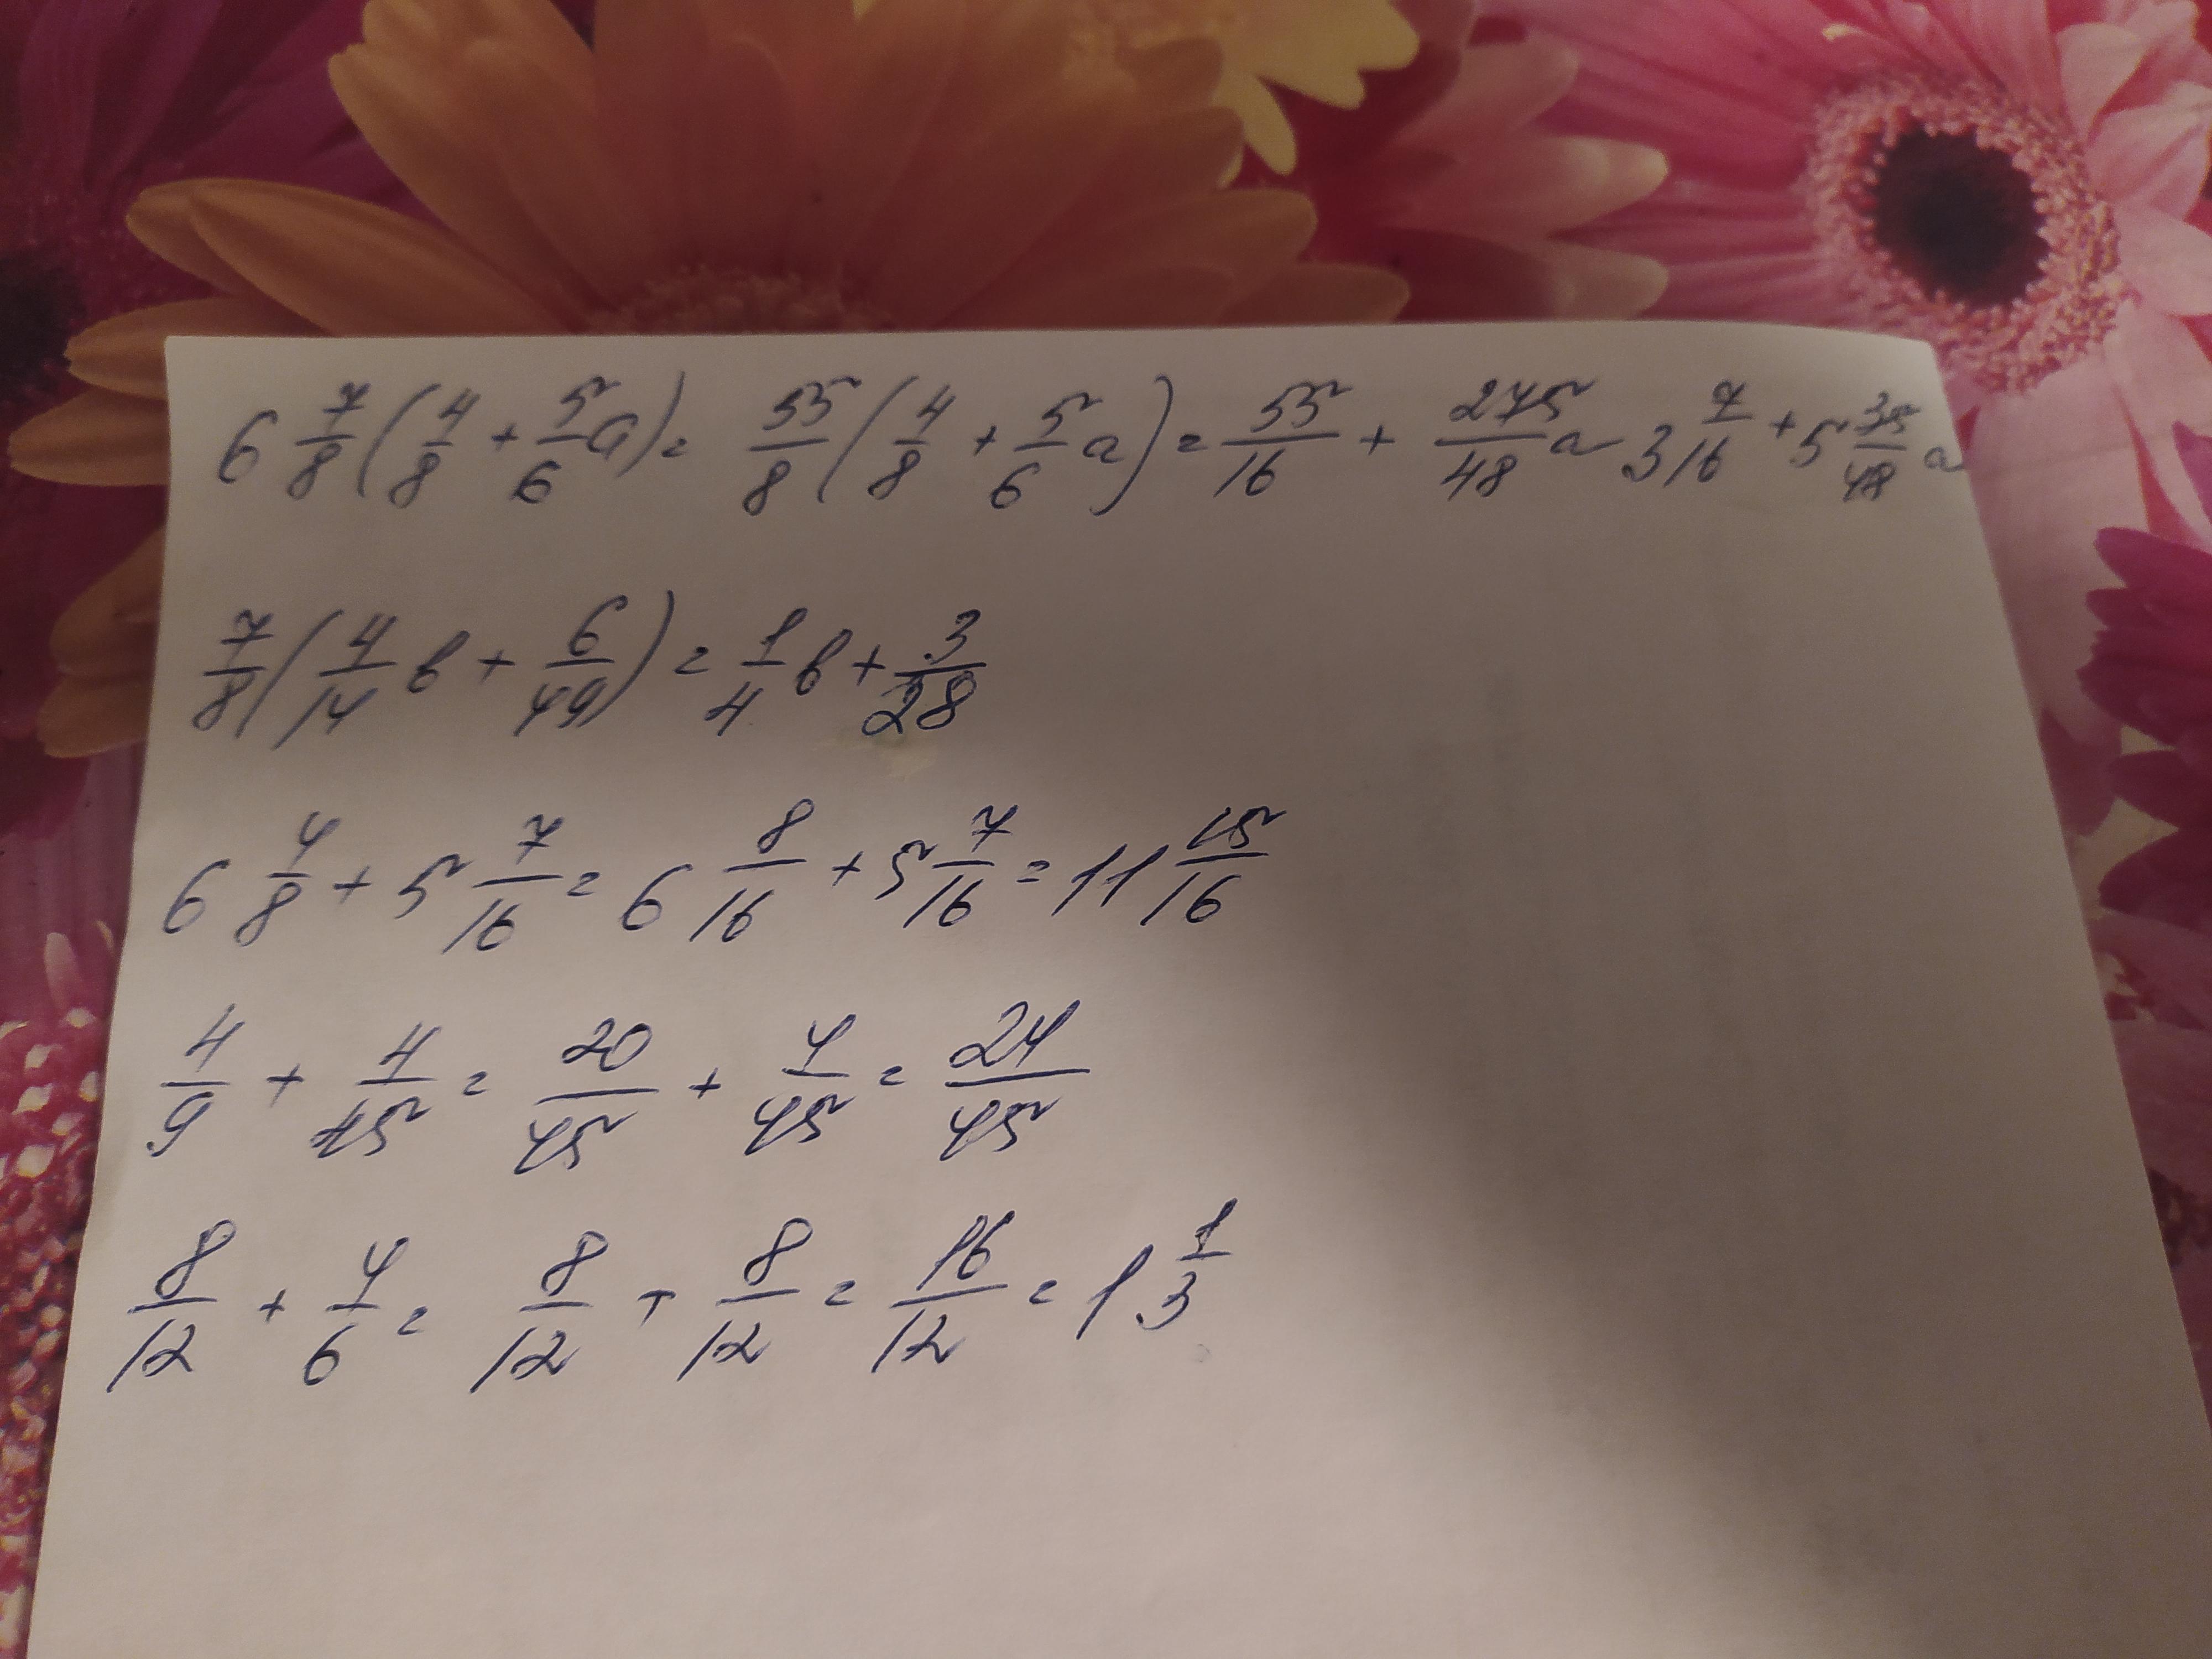 6 7/8 (4/8 + 5/6 a) = 55/8 (4/8 + 5/6 a) = 55/16 + 275/48 a 3 7/16 + 5 35/48 a
7/8 (4/14 b + 6/49) = 1/4 b + 3/28
6 4/8 + 5 7/16 = 6 8/16 + 5 7/16 = 11 15/16
4/9 + 4/45 = 20/45 + 4/45 = 24/45
8/12 + 4/6 = 8/12 + 8/12 = 16/12 = 1 1/3